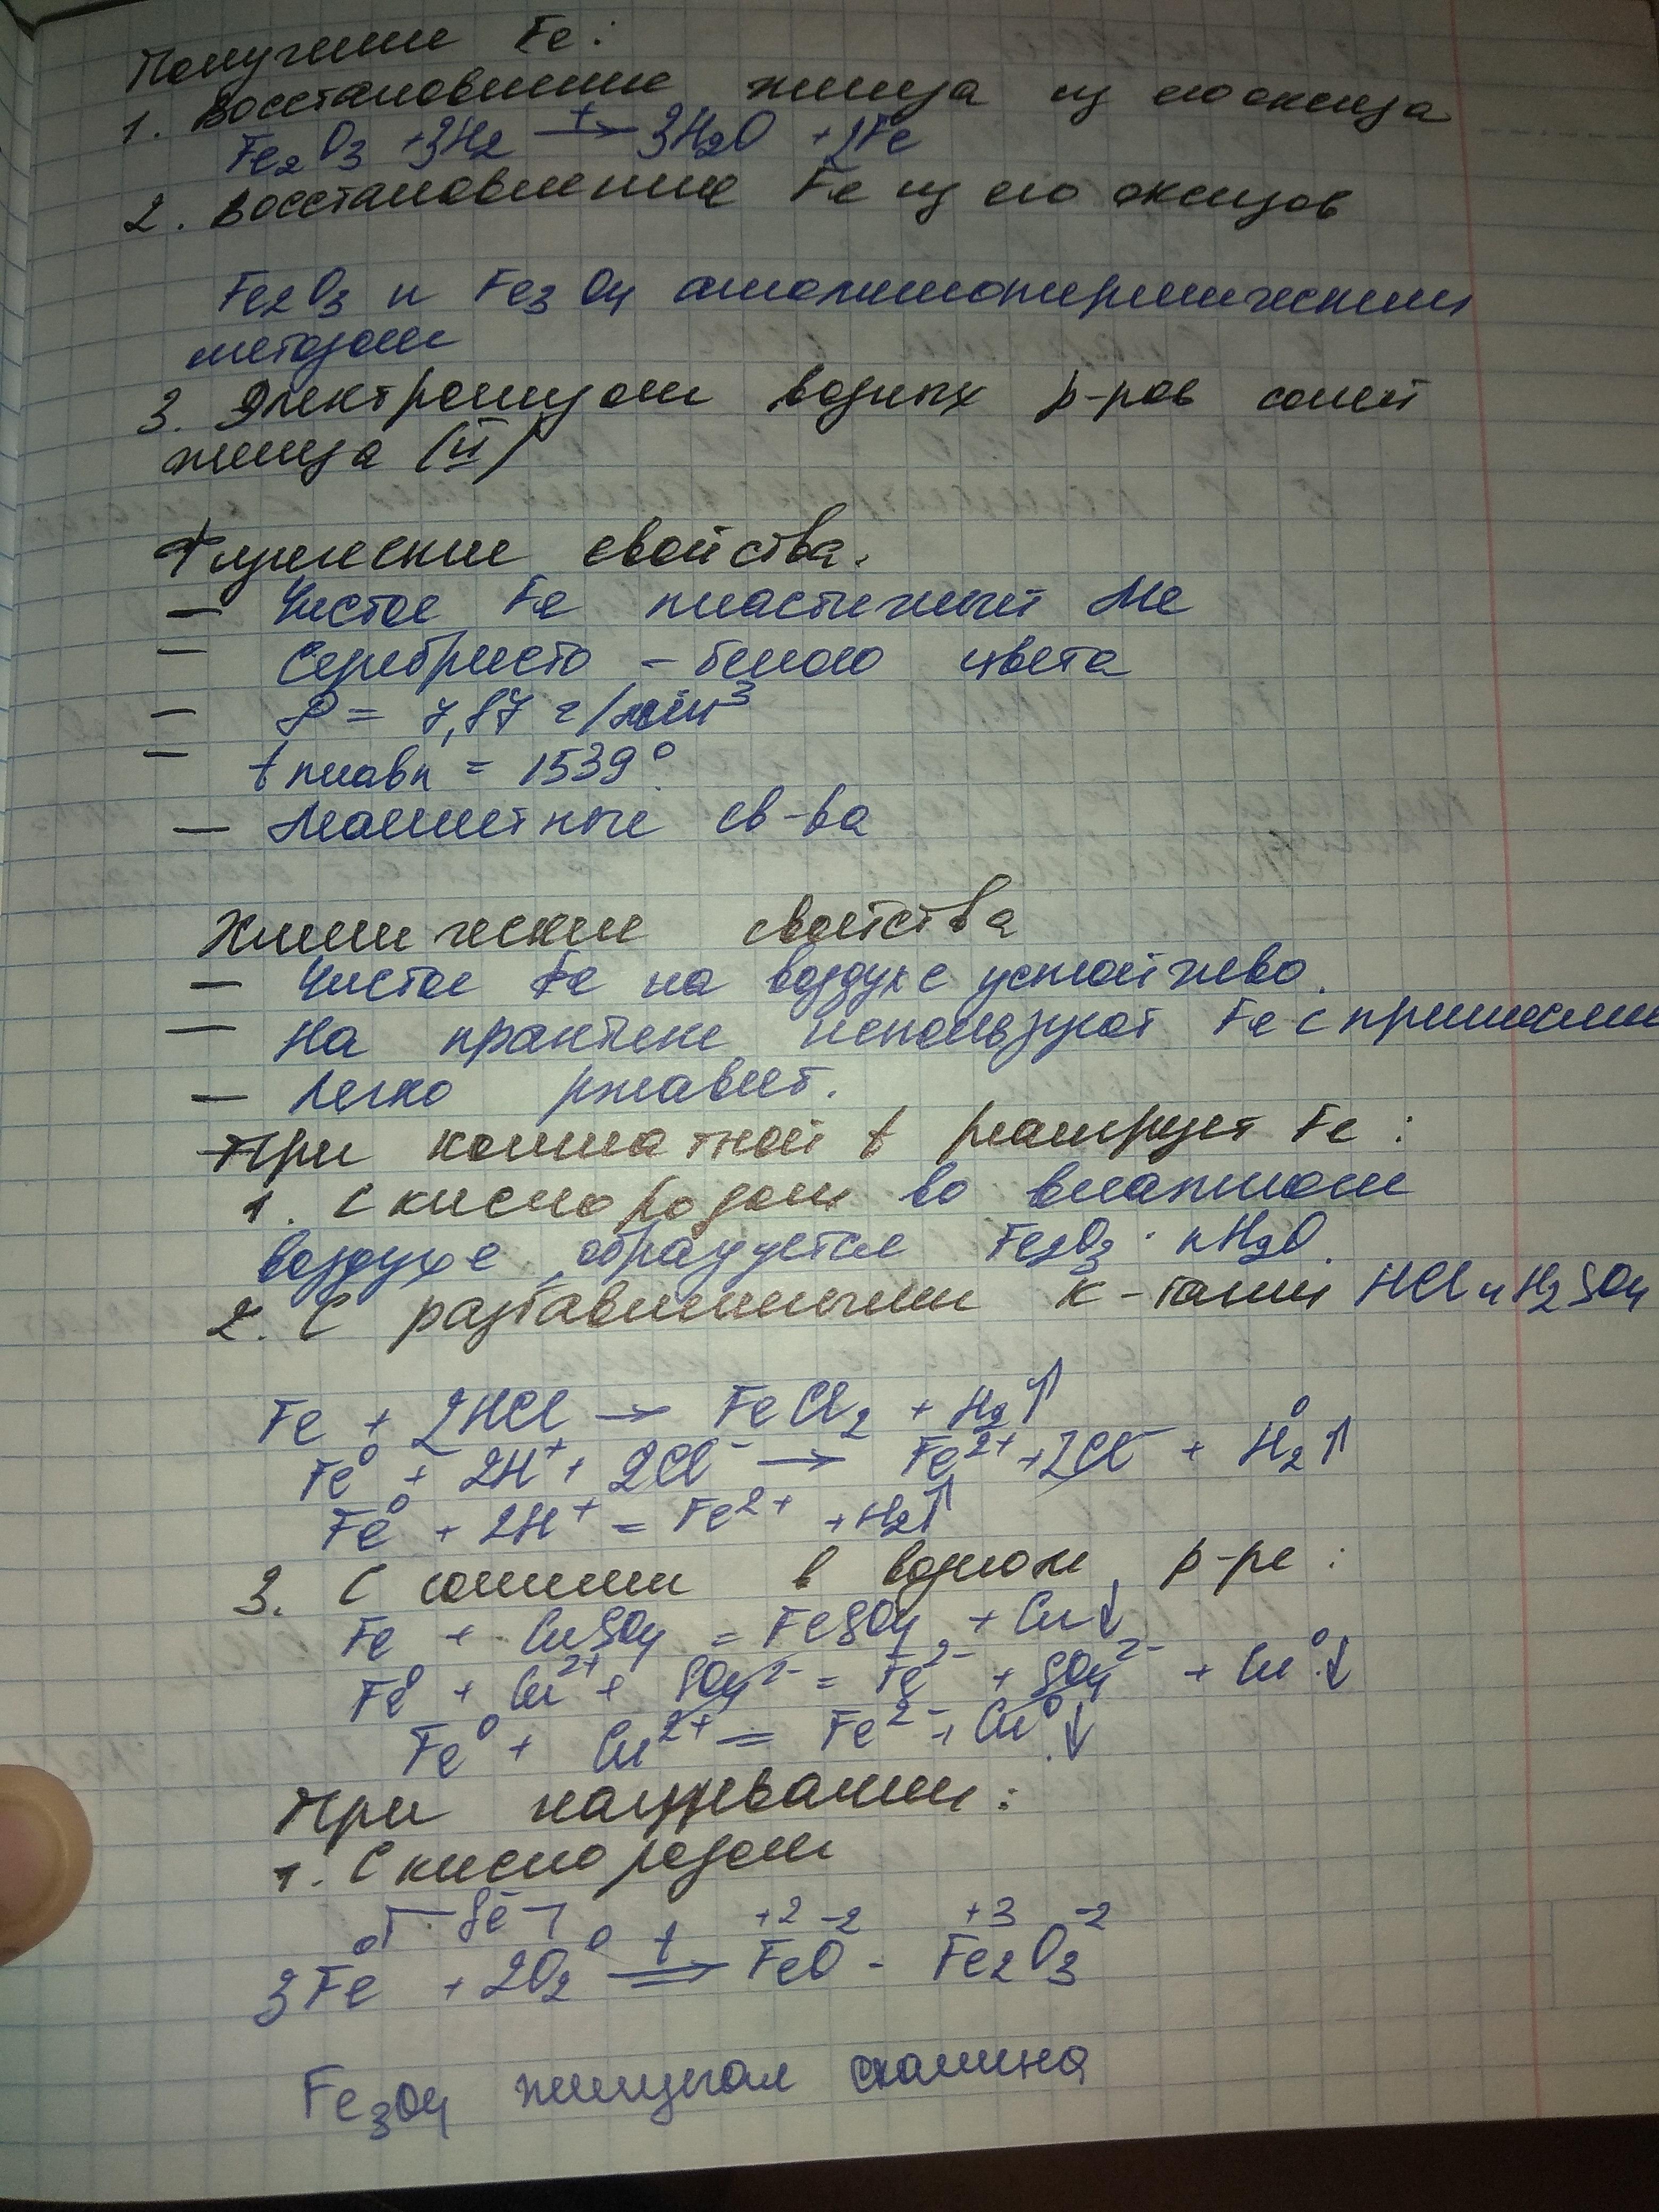 Получение Fe:
1. Восстановление железа из его оксида
Fe₂O₃ + 3H₂ →ᵗ 3H₂O + 2Fe
2. Восстановление Fe из его оксидов
Fe₂O₃ и Fe₃O₄ алюмотермическим
методом
3. Электролизом водных р-ров солей
железа (II)
Физические свойства.
— Чистое Fe пластичный Me
— Серебристо - белого цвета
— ρ = 7,87 г/см³
— t плавл = 1539°
— Магнитные св-ва
Химические свойства
— Чистое Fe на воздухе устойчиво.
— На практике используют Fe с примесями
— Легко ржавеет.
При комнатной t реагирует Fe:
1. С кислородом во влажном
воздухе, образуется Fe₂O₃ · nH₂O.
2. С разбавленными к-тами HCl и H₂SO₄
Fe + 2HCl → FeCl₂ + H₂↑
Fe⁰ + 2H⁺ + 2Cl⁻ → Fe²⁺ + 2Cl⁻ + H₂⁰↑
Fe⁰ + 2H⁺ = Fe²⁺ + H₂↑
3. С солями в водном р-ре:
Fe + CuSO₄ = FeSO₄ + Cu↓
Fe⁰ + Cu²⁺ + SO₄²⁻ = Fe²⁻ + SO₄²⁻ + Cu⁰↓
Fe⁰ + Cu²⁺ = Fe²⁻ + Cu⁰↓
При нагревании:
1. С кислородом
8ē
3Fe⁰ + 2O₂⁰ →ᵗ Fe⁺²O⁻² · Fe₂⁺³O₃⁻²
Fe₃O₄ железная окалина